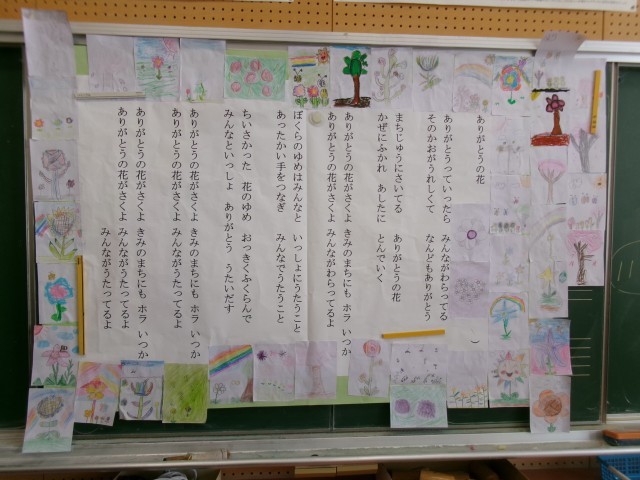 ありがとうの花
ありがとうっていったら　みんながわらってる
そのかおがうれしくて　なんどもありがとう
まちじゅうにさいてる　ありがとうの花
かぜにふかれ　あしたに　とんでいく
ありがとうの花がさくよ　きみのまちにも　ホラ　いつか
ありがとうの花がさくよ　みんながわらってるよ
ぼくらのゆめはみんなと　いっしょにうたうこと
あったかい手をつなぎ　みんなでうたうこと
ちいさかった　花のゆめ　おっきくふくらんで
みんなといっしょ　ありがとう　うたいだす
ありがとうの花がさくよ　きみのまちにも　ホラ　いつか
ありがとうの花がさくよ　みんながうたってるよ
ありがとうの花がさくよ　きみのまちにも　ホラ　いつか
ありがとうの花がさくよ　みんながうたってるよ
みんながうたってるよ